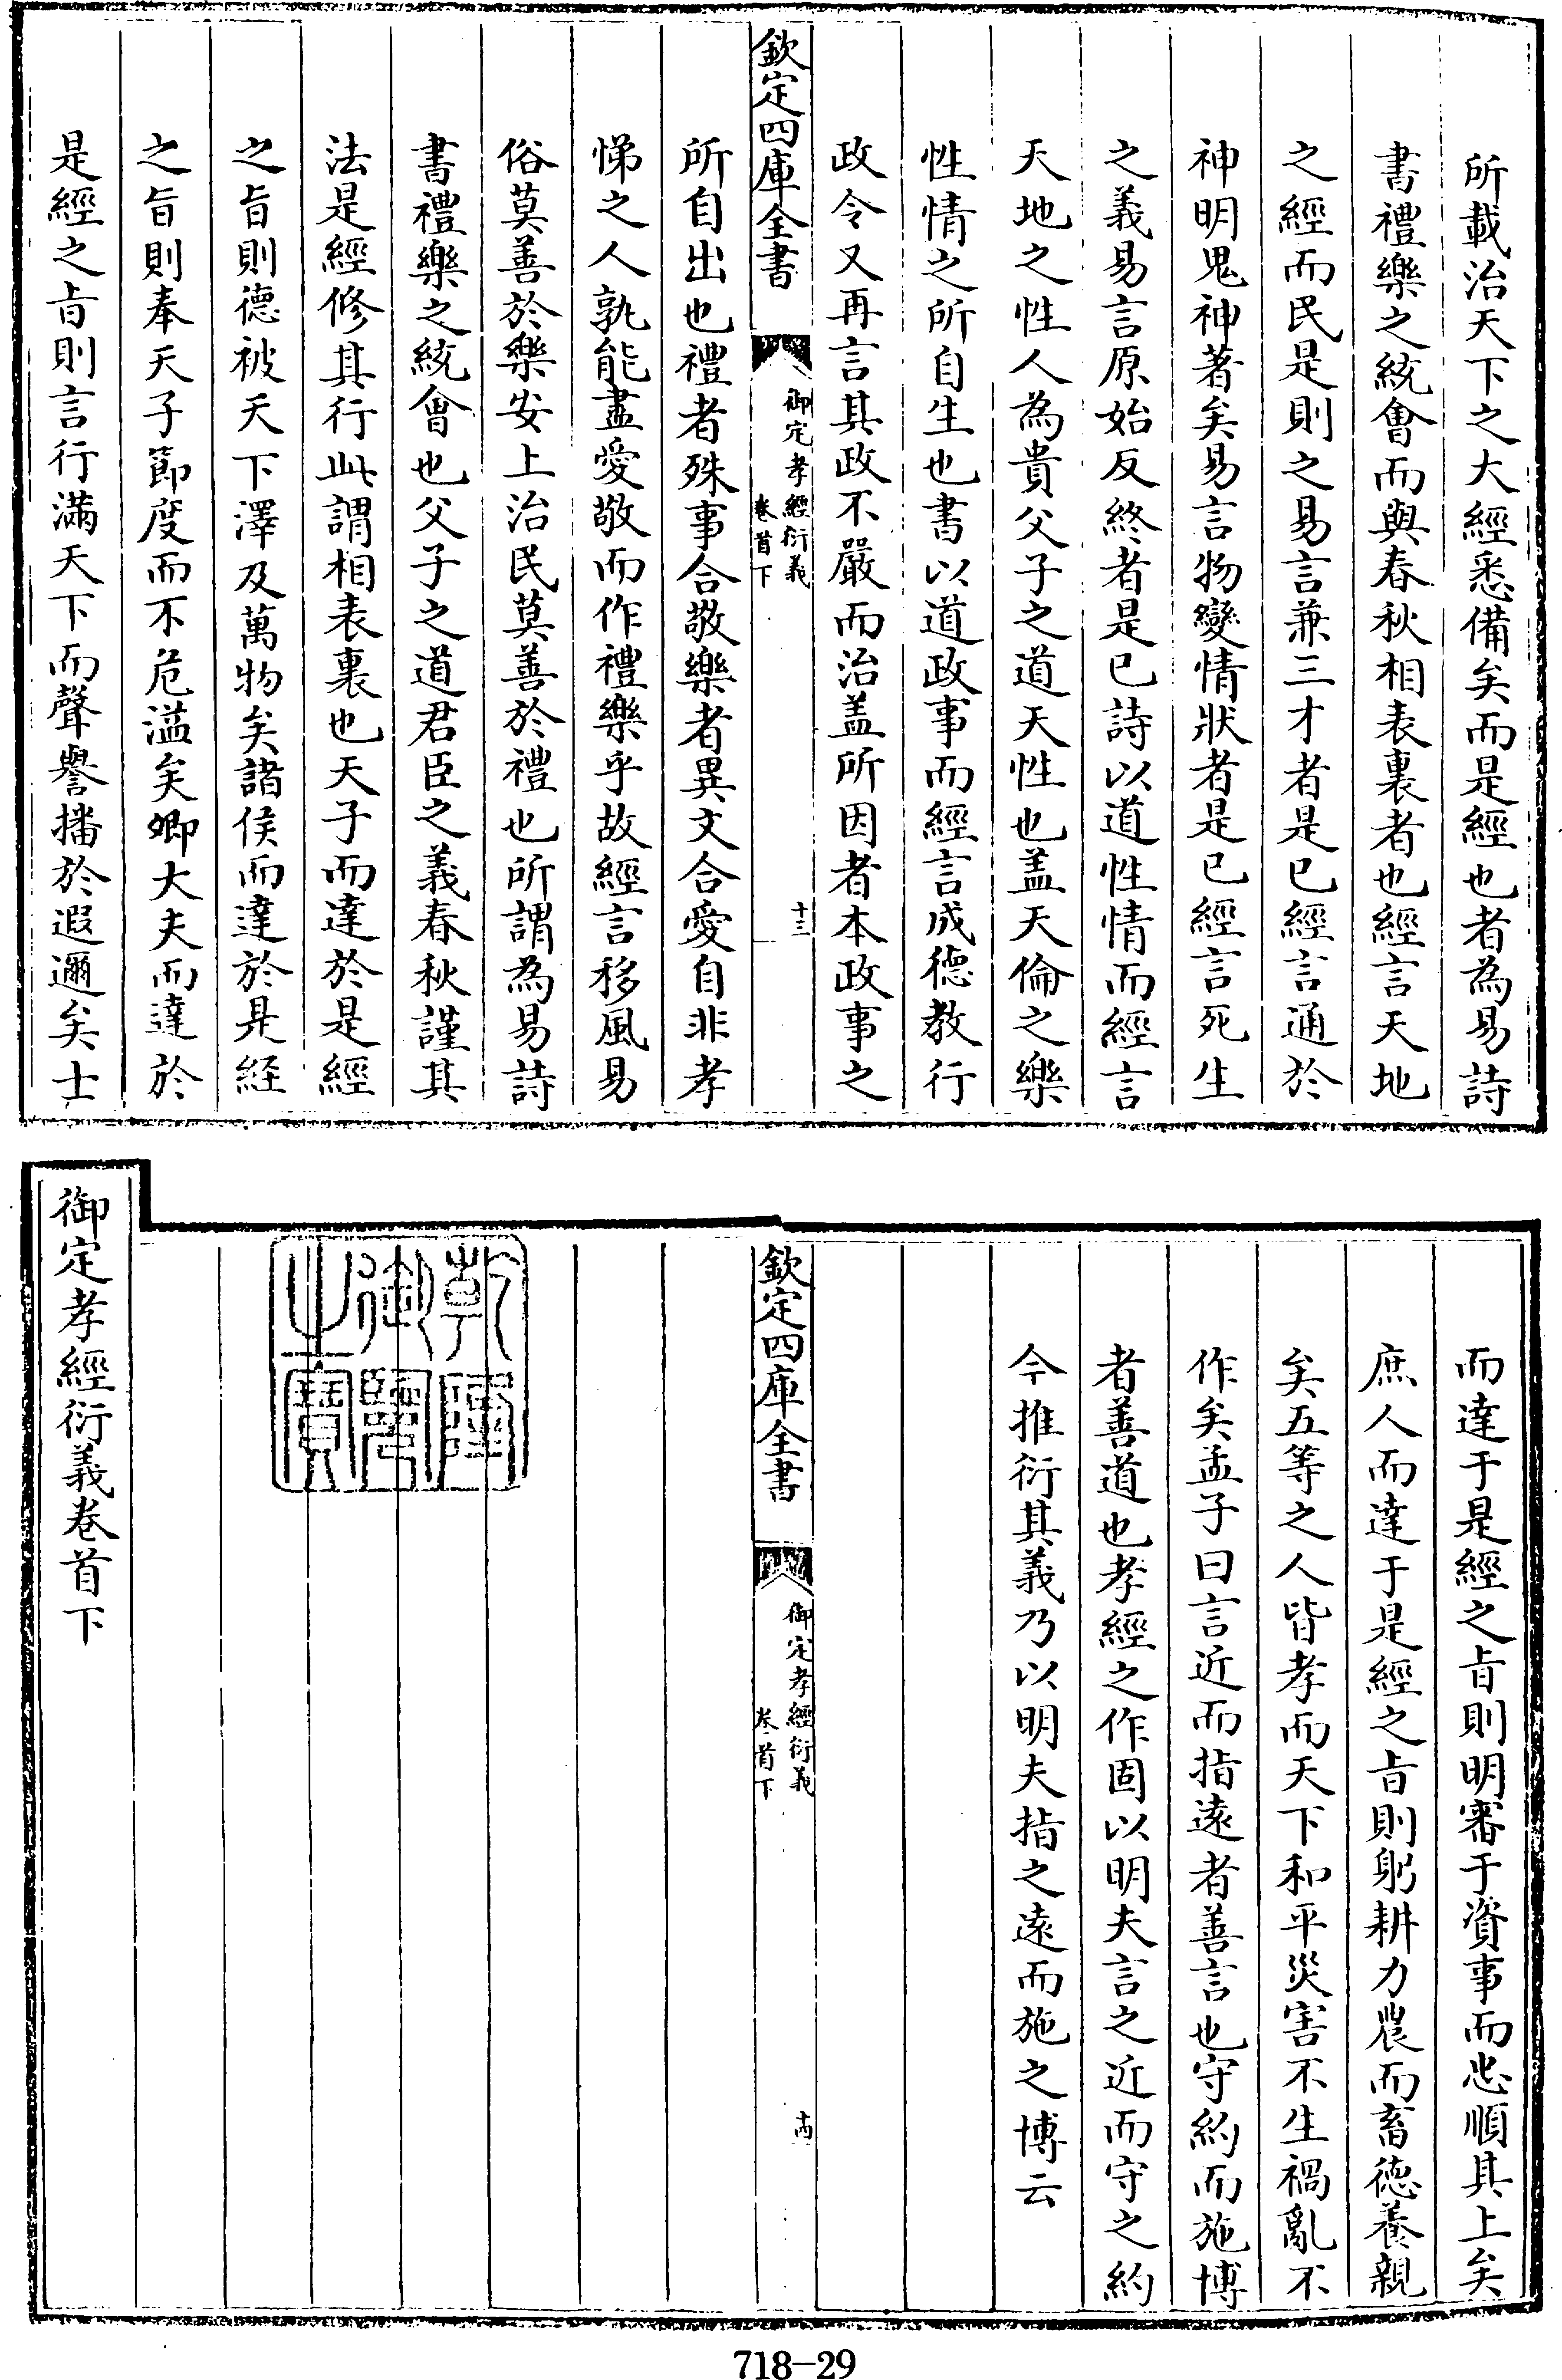 所載治天下之大經悉備矣而是經也者為易詩
書禮樂之統會而與春秋相表裏者也經言天地
之經而民是則之易言兼三才者是已經言通於
神明鬼神著矣易言物變情狀者是已經言死生
之義易言原始反終者是已詩以道性情而經言
天地之性人為貴父子之道天性也蓋天倫之樂
性情之所自生也書以道政事而經言成德教行
政令又再言其政不嚴而治蓋所因者本政事之
欽定四庫全書
御定孝經衍義
卷首下
十三
所自出也禮者殊事合敬樂者異文合愛自非孝
悌之人孰能盡愛敬而作禮樂乎故經言移風易
俗莫善於樂安上治民莫善於禮也所謂為易詩
書禮樂之統會也父子之道君臣之義春秋謹其
法是經修其行此謂相表裏也天子而達於是經
之旨則德被天下澤及萬物矣諸侯而達於是経
之旨則奉天子節度而不危溢矣卿大夫而達於
是經之旨則言行滿天下而聲譽播於遐邇矣士
而達于是經之旨則明審于資事而忠順其上矣
庶人而達于是經之旨則躬耕力農而畜德養親
矣五等之人皆孝而天下和平災害不生禍亂不
作矣孟子曰言近而指遠者善言也守約而施博
者善道也孝經之作固以明夫言之近而守之約
今推衍其義乃以明夫指之遠而施之博云
欽定四庫全書
御定孝經衍義
卷首下
十四
乾隆御覽之寶
御定孝經衍義卷首下
718-29